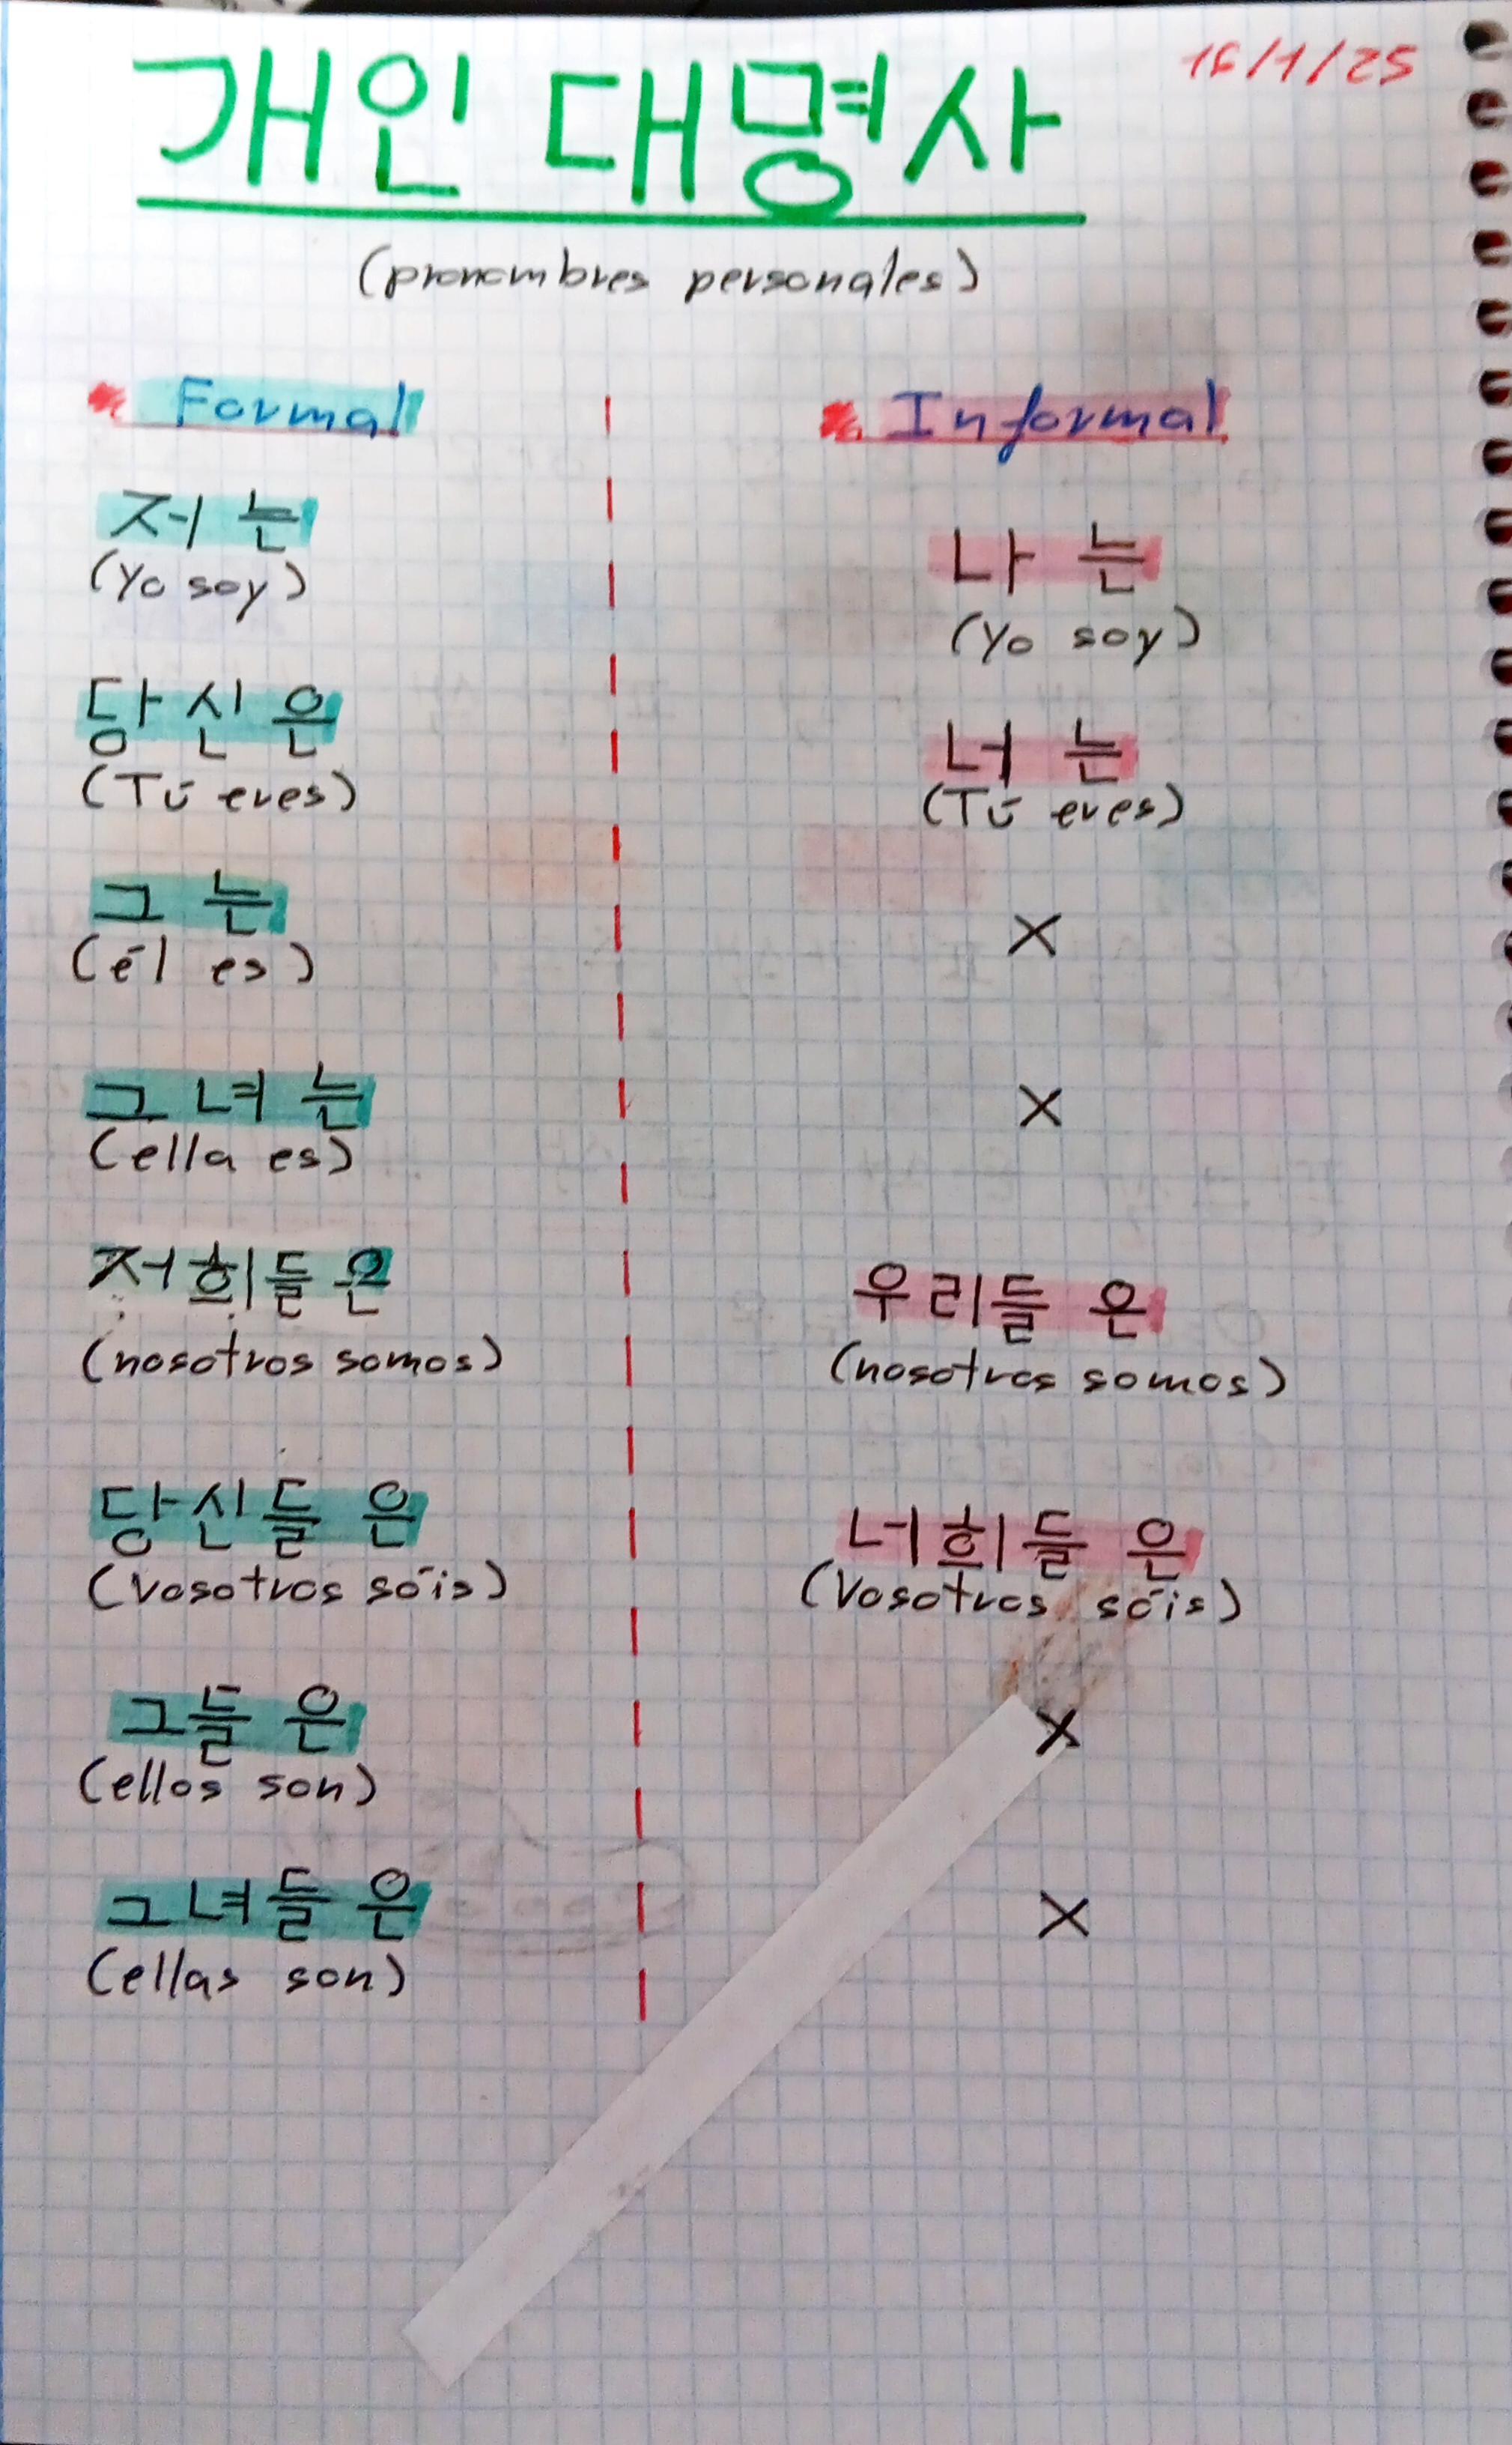 16/1/25
개인 대명사
(pronombres personales)
Formal
Informal
저 는
(Yo soy)
나 는
(Yo soy)
당신은
(Tú eres)
너 는
(Tú eres)
그 는
(él es)
X
그녀 는
(ella es)
X
저희들은
(nosotros somos)
우리들 은
(nosotros somos)
당신들 은
(Vosotros sóis)
너희들 은
(Vosotros sóis)
그들 은
(ellos son)
X
그녀들 은
(ellas son)
X